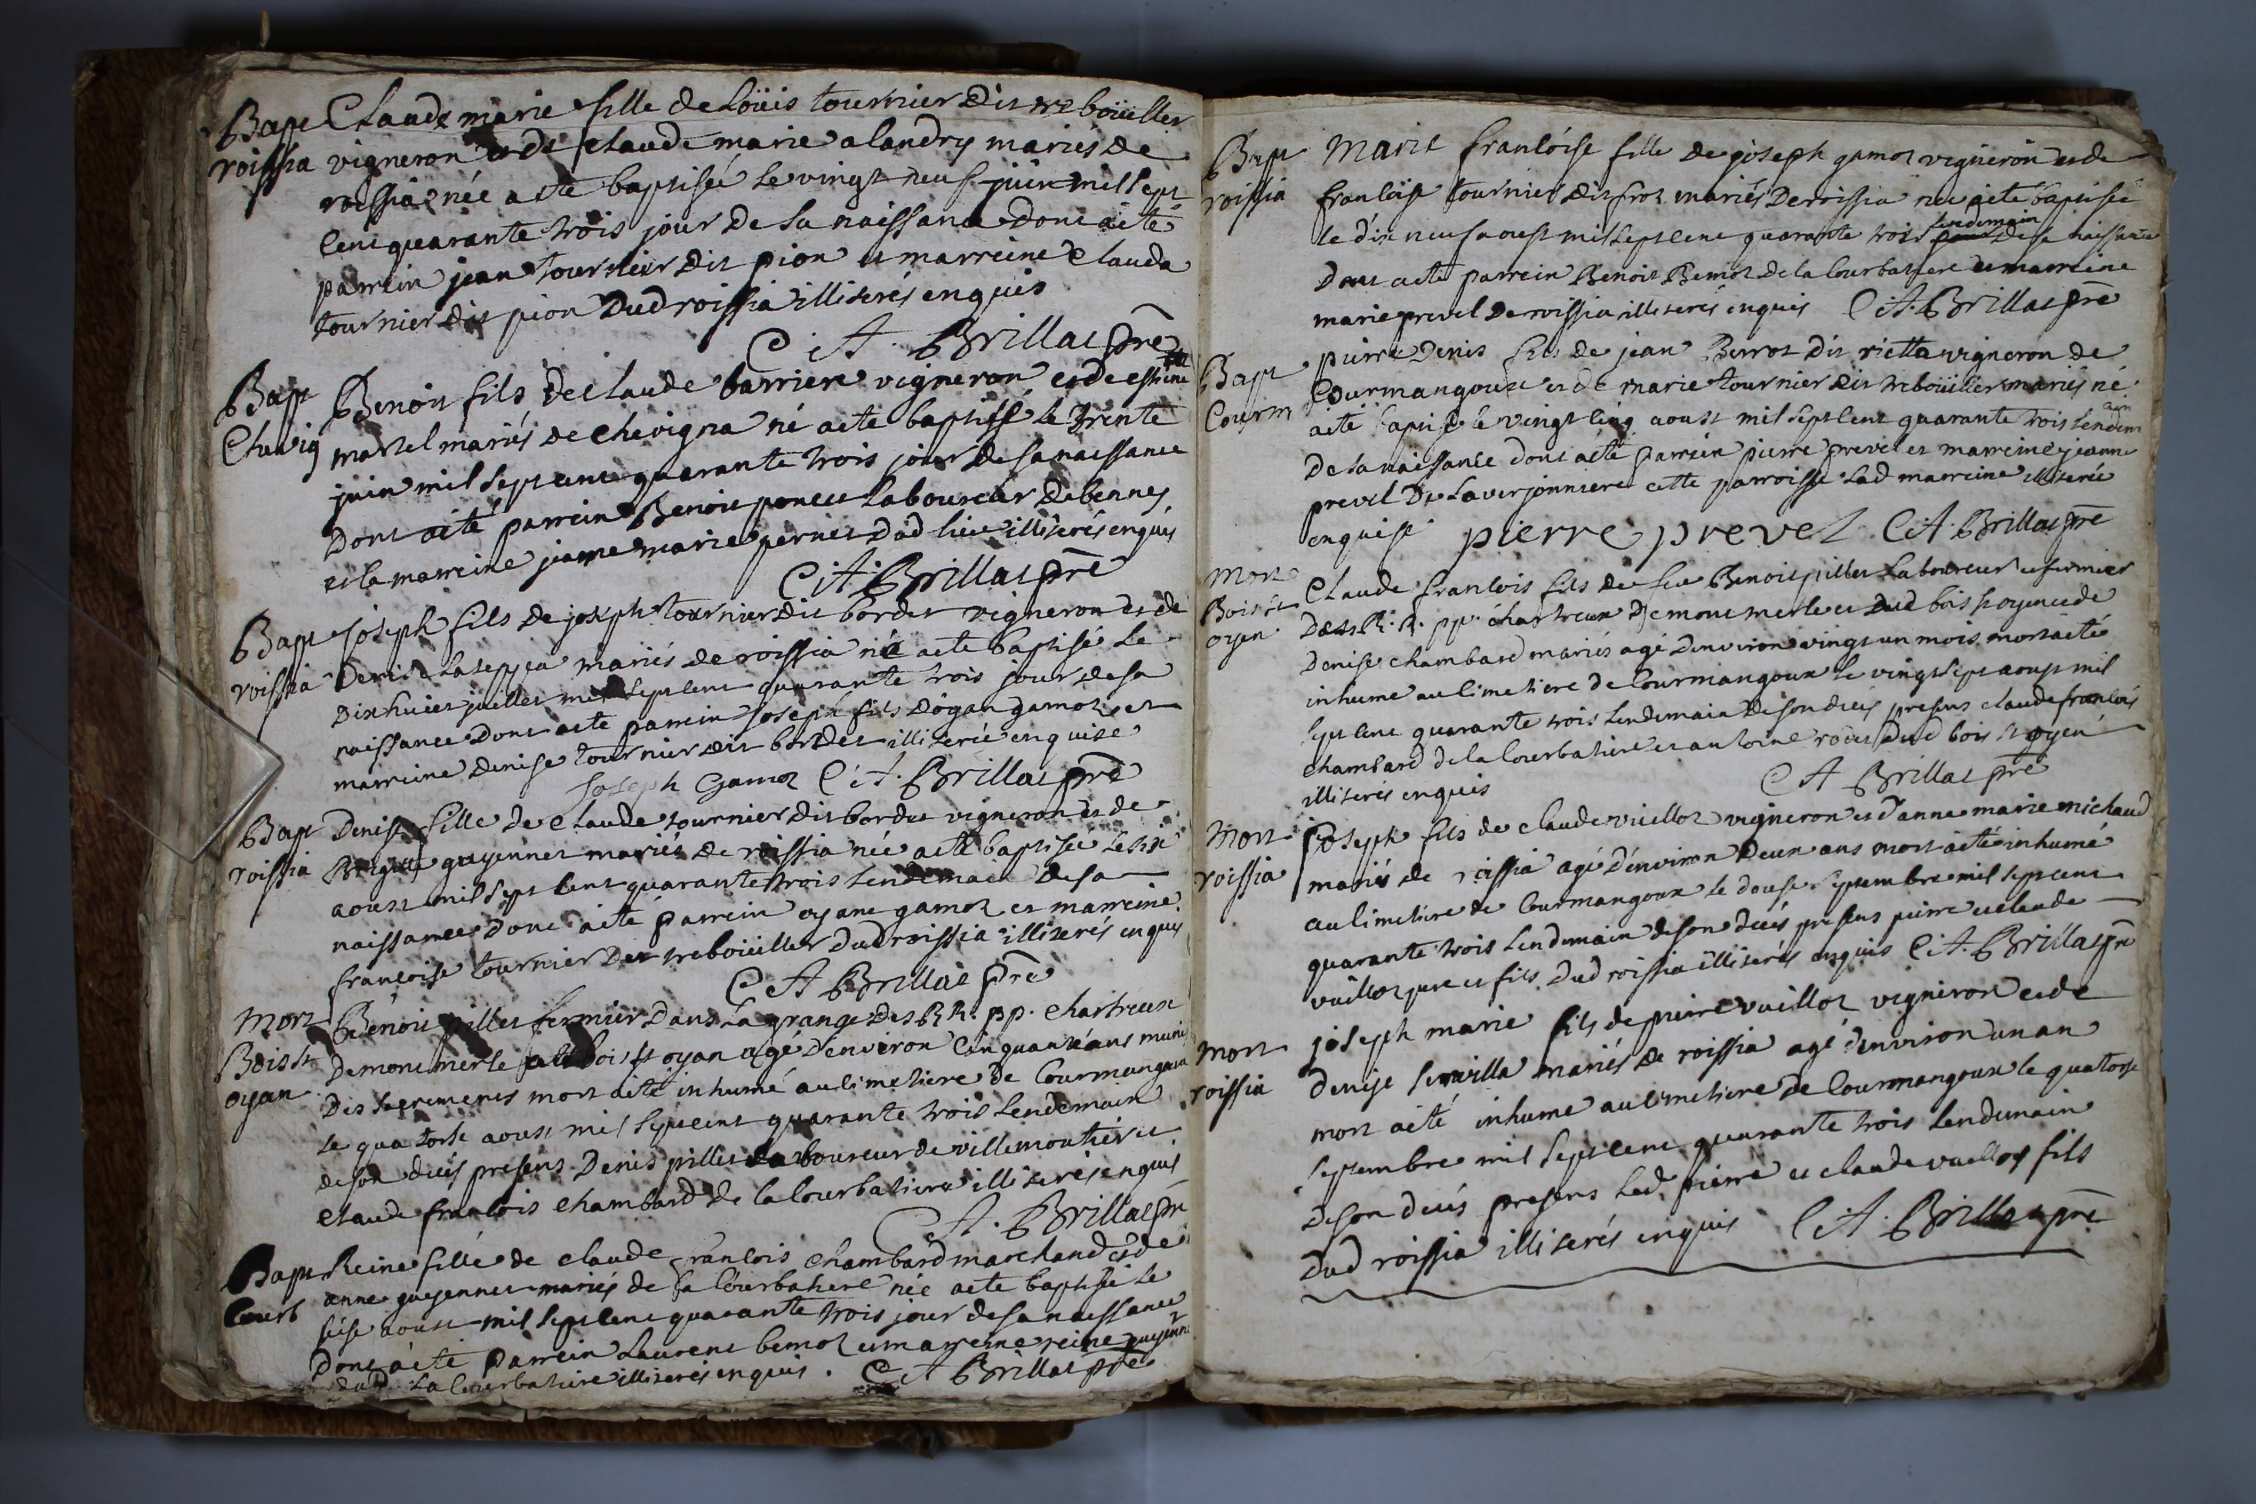 Bapt Claude marie fille de Loüis tournier dit treboüillet
roissia vigneron et de claude marie alandry mariés de
roissia née a eté baptisée le vingt neuf juin mil sept
cent quarante trois jour de sa naissance dont acte
parrein jean tournier dit pion et marreine Clauda
tournier dit pion dud roissia illiterés enquis
C A. Brillat prê
Bapt Benoit fils de claude barriere vigneron et de
Chevig martel mariés de chevigna né a eté baptisé le trente
juin mil sept cent quarante trois jour de sa naissance
dont acte parrein Benoit poncet laboureur de bennes
et la marreine jeanne marie pernet dud lieu illiterés enquis
C. A. Brillat prê
Bapt joseph fils de joseph tournier dit bordet vigneron et de
roissia Denise mariés de roissia né a eté baptisé le
dixhuict juillet mil sept cent quarante trois jour de sa
naissance dont acte parrein joseph fils d'oyan gamot et
marreine denise tournier dit bordet illiterée enquise
Joseph Gamot C. A. Brillat prê
Bapt Denise fille de claude tournier dit bordet vigneron et de
roissia guyennet mariés de roissia née a eté baptisée le six
aoust mil sept cent quarante trois lendemain de sa
naissance dont acte parrein oyant gamot et marreine
françoise tournier dit treboüillet dud roissia illiterés enquis
C A Brillat prê
Mort Benoit pillet fermier dans la grange des R.R. pp. chartreux
Bois St de mont merle au bois st oyan agé d'environ cinquante ans muni
oyan des sacremens mort a eté inhumé au cimetiere de Courmangoux
le quatorse aoust mil sept cent quarante trois lendemain
de son decés presens Denis pillet laboureur de villemoutier et
claude francois chambard de la Courbatiere illiterés enquis
C A. Brillat prê
Bapt Reine fille de claude francois chambard marchand et de
Courb anne guyennet mariés de la Courbatiere née a eté baptisée le
seise aoust mil sept cent quarante trois jour de sa naissance
dont acte parrein Laurent bemot et marreine reine guyennet
dud la Courbatiere illiterés enquis. C A Brillat prê
Bapt Marie francoise fille de joseph gamot vigneron et de
roissia francoise tournier dit frot mariés de roissia née a eté baptisée
lendemain
le dix neuf aoust mil sept cent quarante trois de sa naissance
dont acte parrein Benoit Bemot de la Courbatiere et marreine
marie prevel de roissia illiterés enquis C. A. Brillat prê
Bapt pierre Denis fils de jean Perrot dit rietta vigneron de
Courm Courmangoux et de marie tournier dit treboüillet mariés né
a eté baptisé le vingt cinq aoust mil sept cent quarante trois lendem
ain
de sa naissance dont acte parrein pierre prevel et marreine jeanne
prevel de la verjonniere cette parroisse lad marreine illiterée
enquise pierre prevel C. A. Brillat prê
Mort Claude francois fils de feu Benoit pillet laboureur et fermier
Bois St des R. R. pp. chartreux de mont merle et dud bois st oyen et de
oyen Denise chambard mariés agé d'environ vingt un mois mort a eté
inhumé au cimetiere de Courmangoux le vingt sept aoust mil
sept cent quarante trois lendemain de son decés presens claude francois
chambard de la Courbatiere et antoine dud bois st oyen
illiterés enquis C A Brillat prê
Mort Joseph fils de claude vuillot vigneron et d'anne marie michaud
roissia mariés de roissia agé d'environ deux ans mort a eté inhumé
au cimetiere de Courmangoux le douse septembre mil sept cent
quarante trois lendemain de son decés presens pierre et claude
vuillot pere et fils dud roissia illiterés enquis C. A. Brillat prê
Mort joseph marie fils de pierre vuillot vigneron et de
roissia denise mariés de roissia agé d'environ un an
mort a eté inhumé au cimetiere de Courmangoux le quatorse
septembre mil sept cent quarante trois lendemain
de son decés presens led. pierre et claude vuillot fils
dud roissia illiterés enquis C. A. Brillat prê